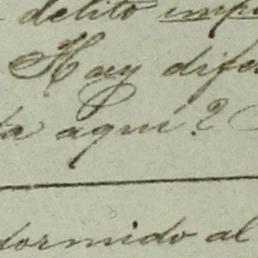 delito imp
Hay dife
ta aqui?
dormido al